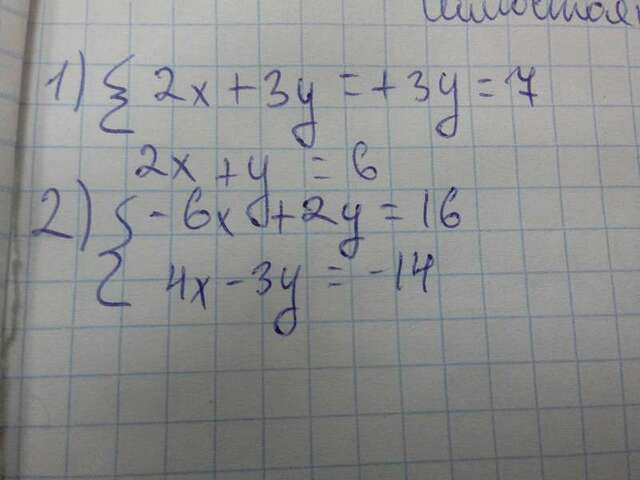 1) { 2x + 3y = + 3y = 7
2x + y = 6
2) { - 6x + 2y = 16
4x - 3y = -14